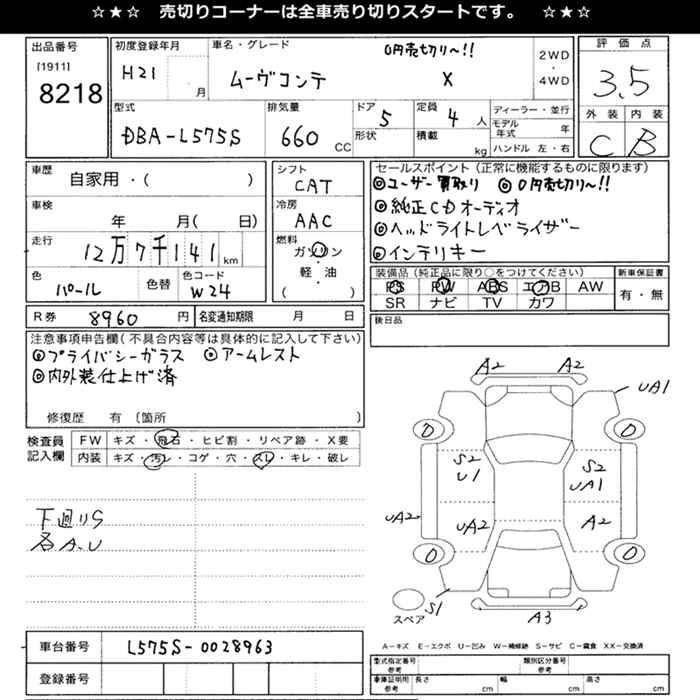 ☆★☆ 売切りコーナーは全車売り切りスタートです。 ☆★☆
出品番号
[1911]
8218
初度登録年月
H21 月
車名・グレード 0円売切リ~!!
ムーヴコンテ X
2WD
・
4WD
評価点
3.5
外装 内装
C B
型式
DBA-L575S
排気量
660 CC
ドア 5
形状
定員 4 人
積載 kg
ディーラー・並行
モデル年式 年
ハンドル 左・右
車歴
自家用・( )
車検
年 月( 日)
走行
12万7千141 km
色
パール
色替
色コード
W24
シフト
CAT
冷房
AAC
燃料
ガソリン
・
軽・油
( )
セールスポイント(正常に機能するものに限ります)
◎ユーザー買取り ◎0円売切リ~!!
◎純正CDオーディオ
◎ヘッドライトレベライザー
◎インテリキー
装備品(純正品に限り○をつけてください)
PS PW ABS エアB AW
SR ナビ TV カワ
新車保証書
有・無
R券 8960 円
名変通知期限 月 日
後日品
注意事項申告欄(不具合内容等は具体的に記入して下さい)
◎プライバシーガラス ◎アームレスト
◎内外装仕上げ済
修復歴 有(箇所 )
検査員
記入欄
FW キズ・飛石・ヒビ割・リペア跡・X要
内装 キズ・汚レ・コゲ・穴・スレ・キレ・破レ
下廻りS
各A.U
A2 A2
UA1
S2
U1
S2
UA1
UA2
UA2
A2
S1
A3
スペア
車台番号 L575S-0028963
登録番号
A-キズ E-エクボ U-凹み W-補修跡 S-サビ C-腐食 XX-交換済
型式指定番号
参考
類別区分番号
参考
車庫証明用
参考
長さ cm
幅 cm
高さ cm